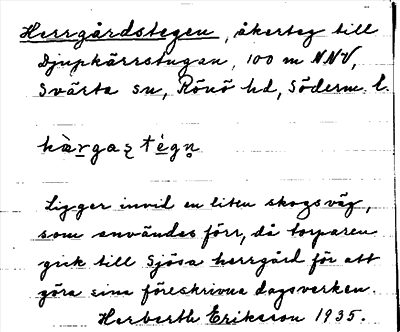 Herrgårdstegen, åkerteg till
Djupkärrstugan, 100 m NNV,
Svärta sn, Rönö hd, Söderm. l.
hàrgaʂ tègn̥
Ligger invid en liten skogsväg,
som användes förr, då torparen
gick till Sjösa herrgård för att
göra sina föreskrivna dagsverken.
Herberth Eriksson 1935.